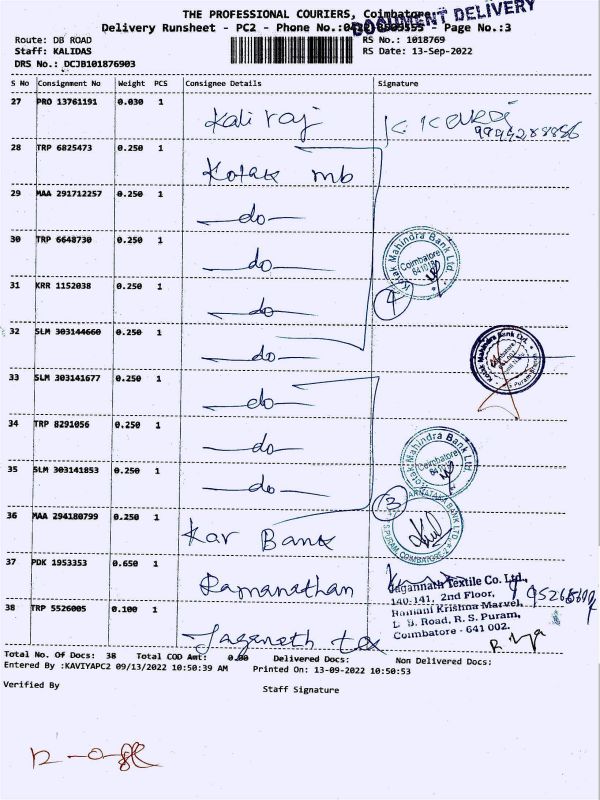 THE PROFESSIONAL COURIERS, Coimbatore
DOCUMENT DELIVERY
Delivery Runsheet - PC2 - Phone No.: - Page No.:3
Route: DB ROAD RS No.: 1018769
Staff: KALIDAS RS Date: 13-Sep-2022
DRS No.: DCJB101876903
S No Consignment No Weight PCS Consignee Details Signature
27 PRO 13761191 0.030 1 Kali raj
28 TRP 6825473 0.250 1 Kotak mb
29 MAA 291712257 0.250 1 do
30 TRP 6648730 0.250 1 do
Kotak Mahindra Bank Ltd. Coimbatore
31 KRR 1152038 0.250 1 do
4
32 SLM 303144660 0.250 1 do
Kotak Mahindra Bank Ltd.
33 SLM 303141677 0.250 1 do
34 TRP 8291056 0.250 1 do
Kotak Mahindra Bank Ltd. Coimbatore
35 SLM 303141853 0.250 1 do
3
36 MAA 294180799 0.250 1 Kar Bank
KARNATAKA BANK LTD. R.S.PURAM, COIMBATORE-2
37 PDK 1953353 0.650 1 Ramanathan
Jagannath Textile Co. Ltd.,
140-141, 2nd Floor,
Raheni Krishna Marvel,
D. B. Road, R. S. Puram,
Coimbatore - 641 002.
38 TRP 5526005 0.100 1 Jaganath tex
Total No. Of Docs: 38 Total COD Amt: 0.00 Delivered Docs: Non Delivered Docs:
Entered By :KAVIYAPC2 09/13/2022 10:50:39 AM Printed On: 13-09-2022 10:50:53
Verified By Staff Signature